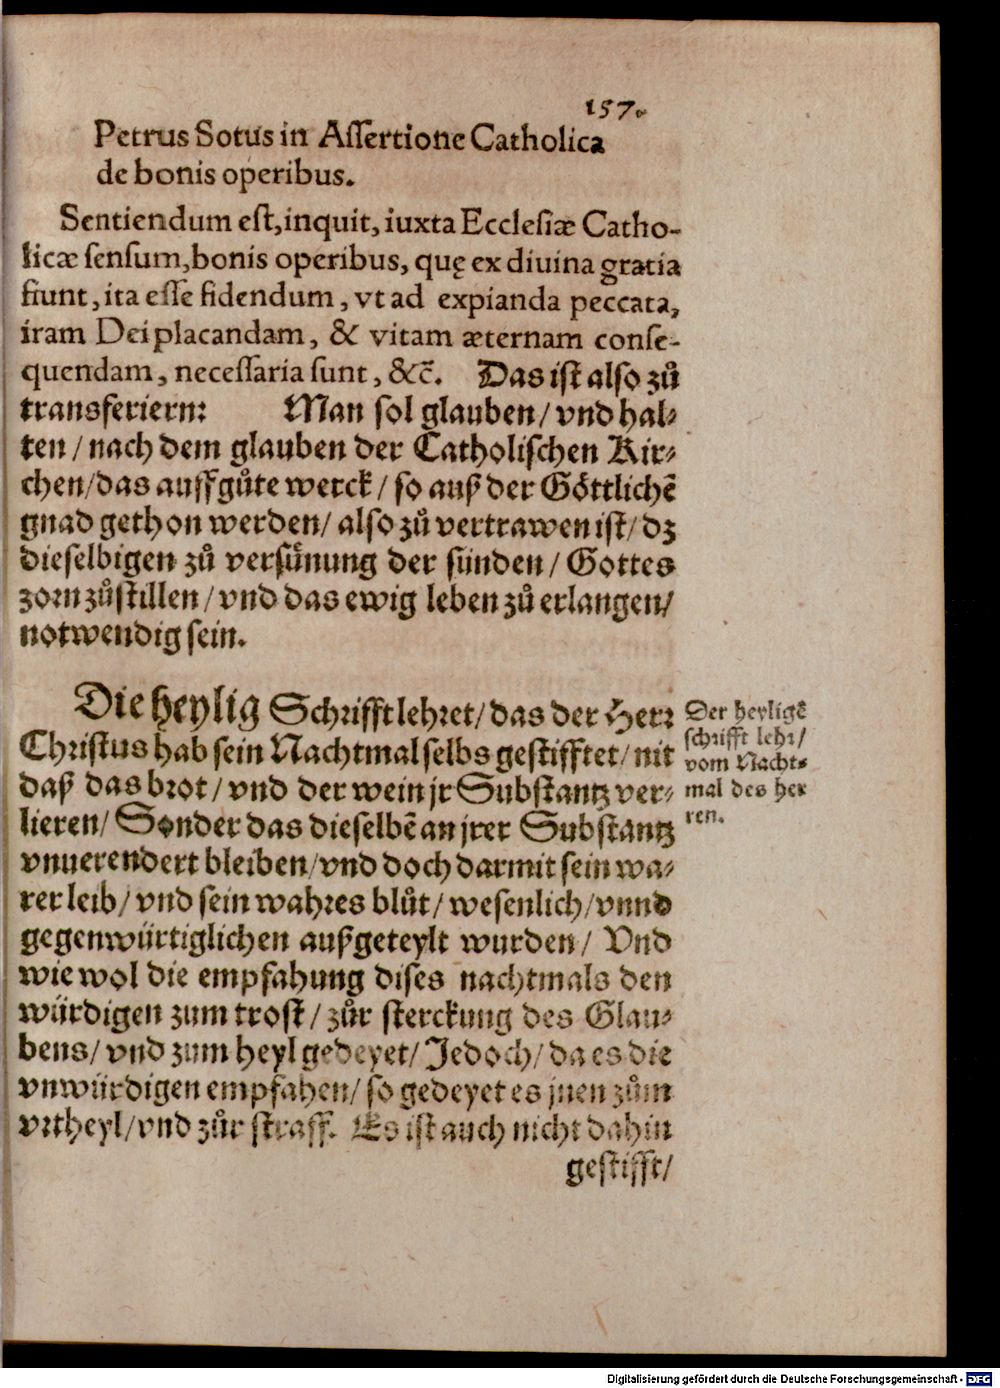 157.
Petrus Sotus in Aſſertione Catholica
de bonis operibus.
Sentiendum eſt, inquit, iuxta Eccleſiæ Catho-
licæ ſenſum, bonis operibus, quę ex diuina gratia
fiunt, ita eſſe fidendum, vt ad expianda peccata,
iram Dei placandam, & vitam æternam conſe-
quendam, neceſſaria ſunt, &c̄. Das iſt alſo zů
transferiern: Man ſol glauben/ vnd hal⸗
ten/ nach dem glauben der Catholiſchen Kir⸗
chen/ das auff gůte werck/ ſo auß der Göttlichē
gnad gethon werden/ alſo zů vertrawen iſt/ dz
dieſelbigen zů verſünung der ſünden/ Gottes
zorn zůſtillen/ vnd das ewig leben zů erlangen/
notwendig ſein.
Die heylig Schrifft lehret/ das der Herr
Chriſtus hab ſein Nachtmal ſelbs geſtifftet/ nit
daß das brot/ vnd der wein jr Subſtantz ver⸗
lieren/ Sonder das dieſelbē an jrer Subſtantz
vnuerendert bleiben/ vnd doch darmit ſein wa⸗
rer leib/ vnd ſein wahres blůt/ weſenlich/ vnnd
gegenwürtiglichen außgeteylt wurden/ Vnd
wie wol die empfahung diſes nachtmals den
würdigen zum troſt/ zůr ſterckung des Glau⸗
bens/ vnd zum heyl gedeyet/ Jedoch/ da es die
vnwürdigen empfahen/ ſo gedeyet es jnen zům
vrtheyl/ vnd zůr ſtraff. Es iſt auch nicht dahin
geſtifft/
Der heyligē
ſchrifft lehr/
vom Nacht⸗
mal des her
ren.
Digitalisierung gefördert durch die Deutsche Forschungsgemeinschaft - DFG